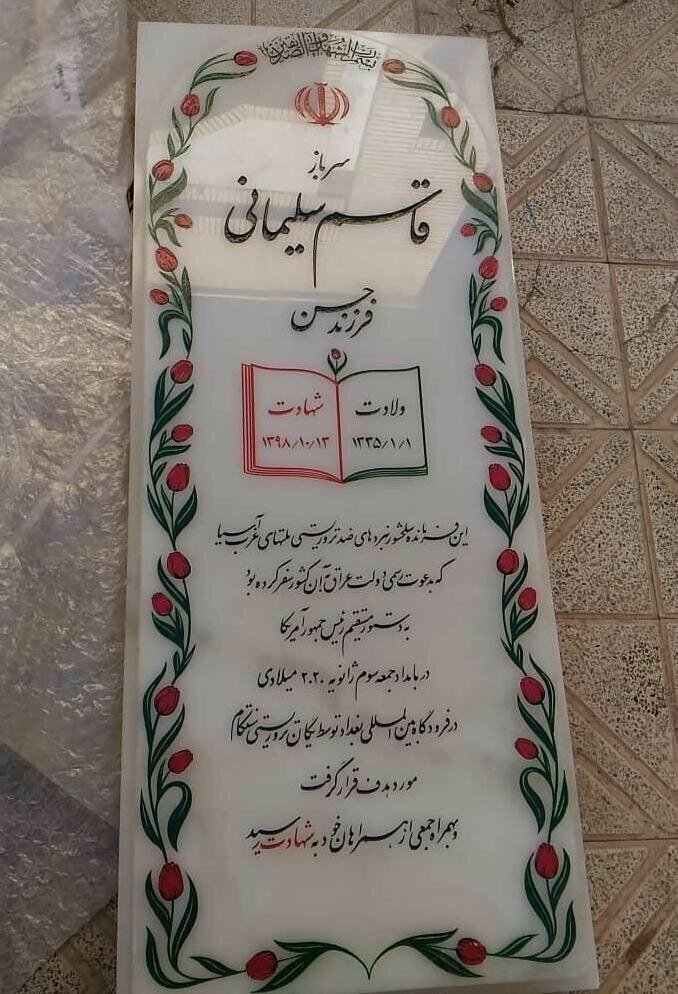 بسم رب الشهداء و الصدیقین
سرباز
قاسم سلیمانی
فرزند حسن
ولادت
۱۳۳۵/۱/۱
شهادت
۱۳۹۸/۱۰/۱۳
این فرمانده سلحشور نبردهای ضد تروریستی ملتهای غرب آسیا
که بدعوت رسمی دولت عراق به آن کشور سفر کرده بود
به دستور مستقیم رئیس جمهور آمریکا
در بامداد جمعه سوم ژانویه ۲۰۲۰ میلادی
در فرودگاه بین المللی بغداد توسط یگان تروریستی سنتکام
مورد هدف قرار گرفت
و بهمراه جمعی از همراهان خود به شهادت رسید